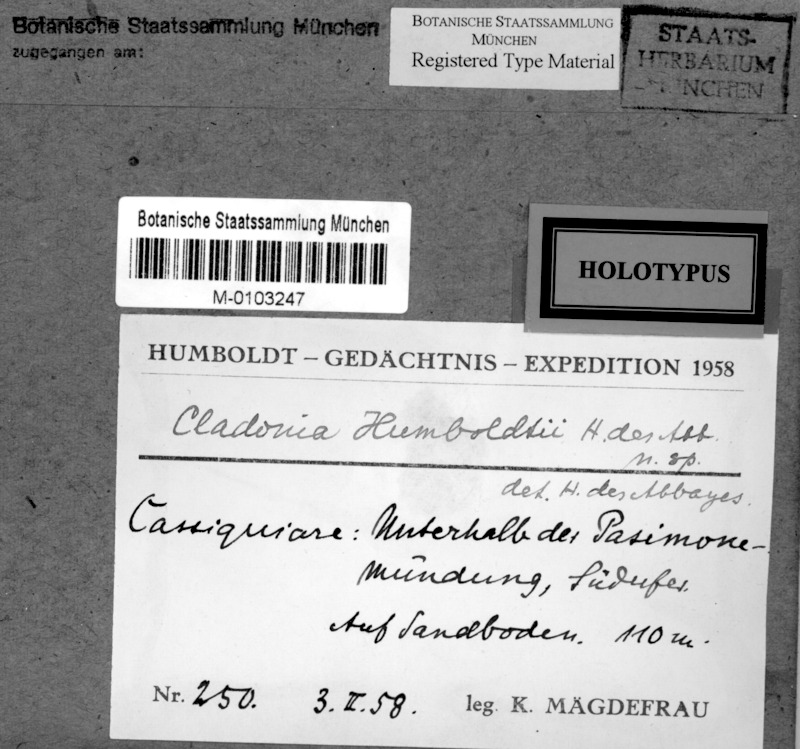 Botanische Staatssammlung München
zugegangen am:
BOTANISCHE STAATSSAMMLUNG
MÜNCHEN
Registered Type Material
STAATS-
HERBARIUM
MÜNCHEN
Botanische Staatssammlung München
M-0103247
HOLOTYPUS
HUMBOLDT – GEDÄCHTNIS – EXPEDITION 1958
Cladonia Humboldtii H. des Abb.
n. sp.
det. H. des Abbayes.
Cassiquiare: Unterhalb der Pasimone-
mündung, Südufer.
Auf Sandboden. 110 m.
Nr. 250. 3. II. 58. leg. K. MÄGDEFRAU